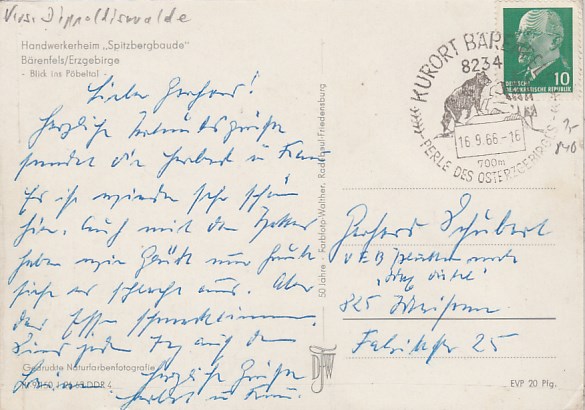 Krs. Dippoldiswalde
Handwerkerheim „Spitzbergbaude"
Bärenfels/Erzgebirge
- Blick ins Pöbeltal -
KURORT BÄRENFELS
8234
16.9.66-16
700m
PERLE DES OSTERZGEBIRGES
DEUTSCHE
DEMOKRATISCHE REPUBLIK 10
Lieber Gerhard!
Herzliche Urlaubsgrüße
sendet dir Herbert u. Frau
Es ist wieder sehr schön
hier. Auch mit dem Wetter
haben wir Glück nur heute
sieht es schlecht aus. Aber
das Essen schmeckt immer.
Sind jeden Tag auf den
Beinen. Herzliche Grüße
Herbert u. Frau.
50 Jahre - Farbfoto-Walther, Radebeul-Friedensburg
Gerhard Schubert
VEB
825 Meißen
Fabrikstr 25
Gedruckte Naturfarbenfotografie
DDR 4
EVP 20 Pfg.